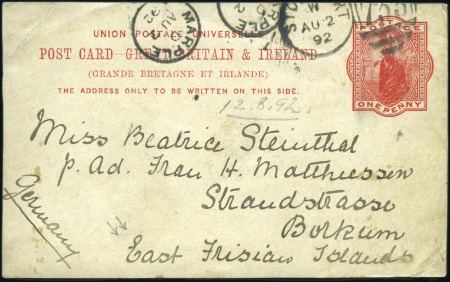 UNION POSTALE UNIVERSELLE
POST CARD–GREAT BRITAIN & IRELAND
(GRANDE BRETAGNE ET IRLANDE)
THE ADDRESS ONLY TO BE WRITTEN ON THIS SIDE.
MARPLE
AU 2
92
MARPLE
W
AU 2
92
POSTAGE
ONE PENNY
12.8.92.
Miss Beatrice Steinthal
p. Ad. Frau H. Matthiessen
Strandstrasse
Borkum
East Frisian Islands
Germany